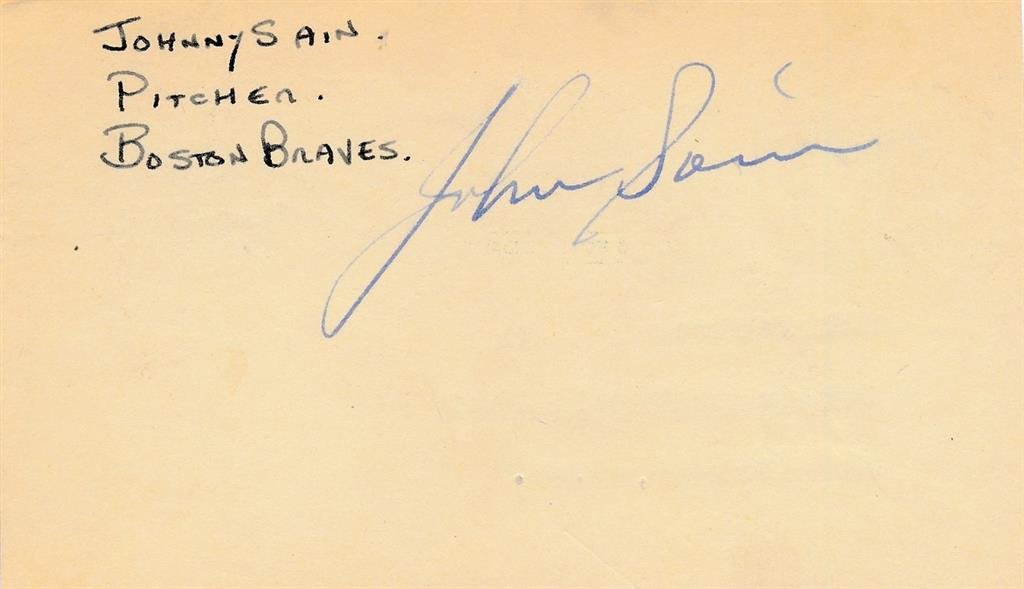 JOHNNY SAIN.
PITCHER.
BOSTON BRAVES.
John Sain